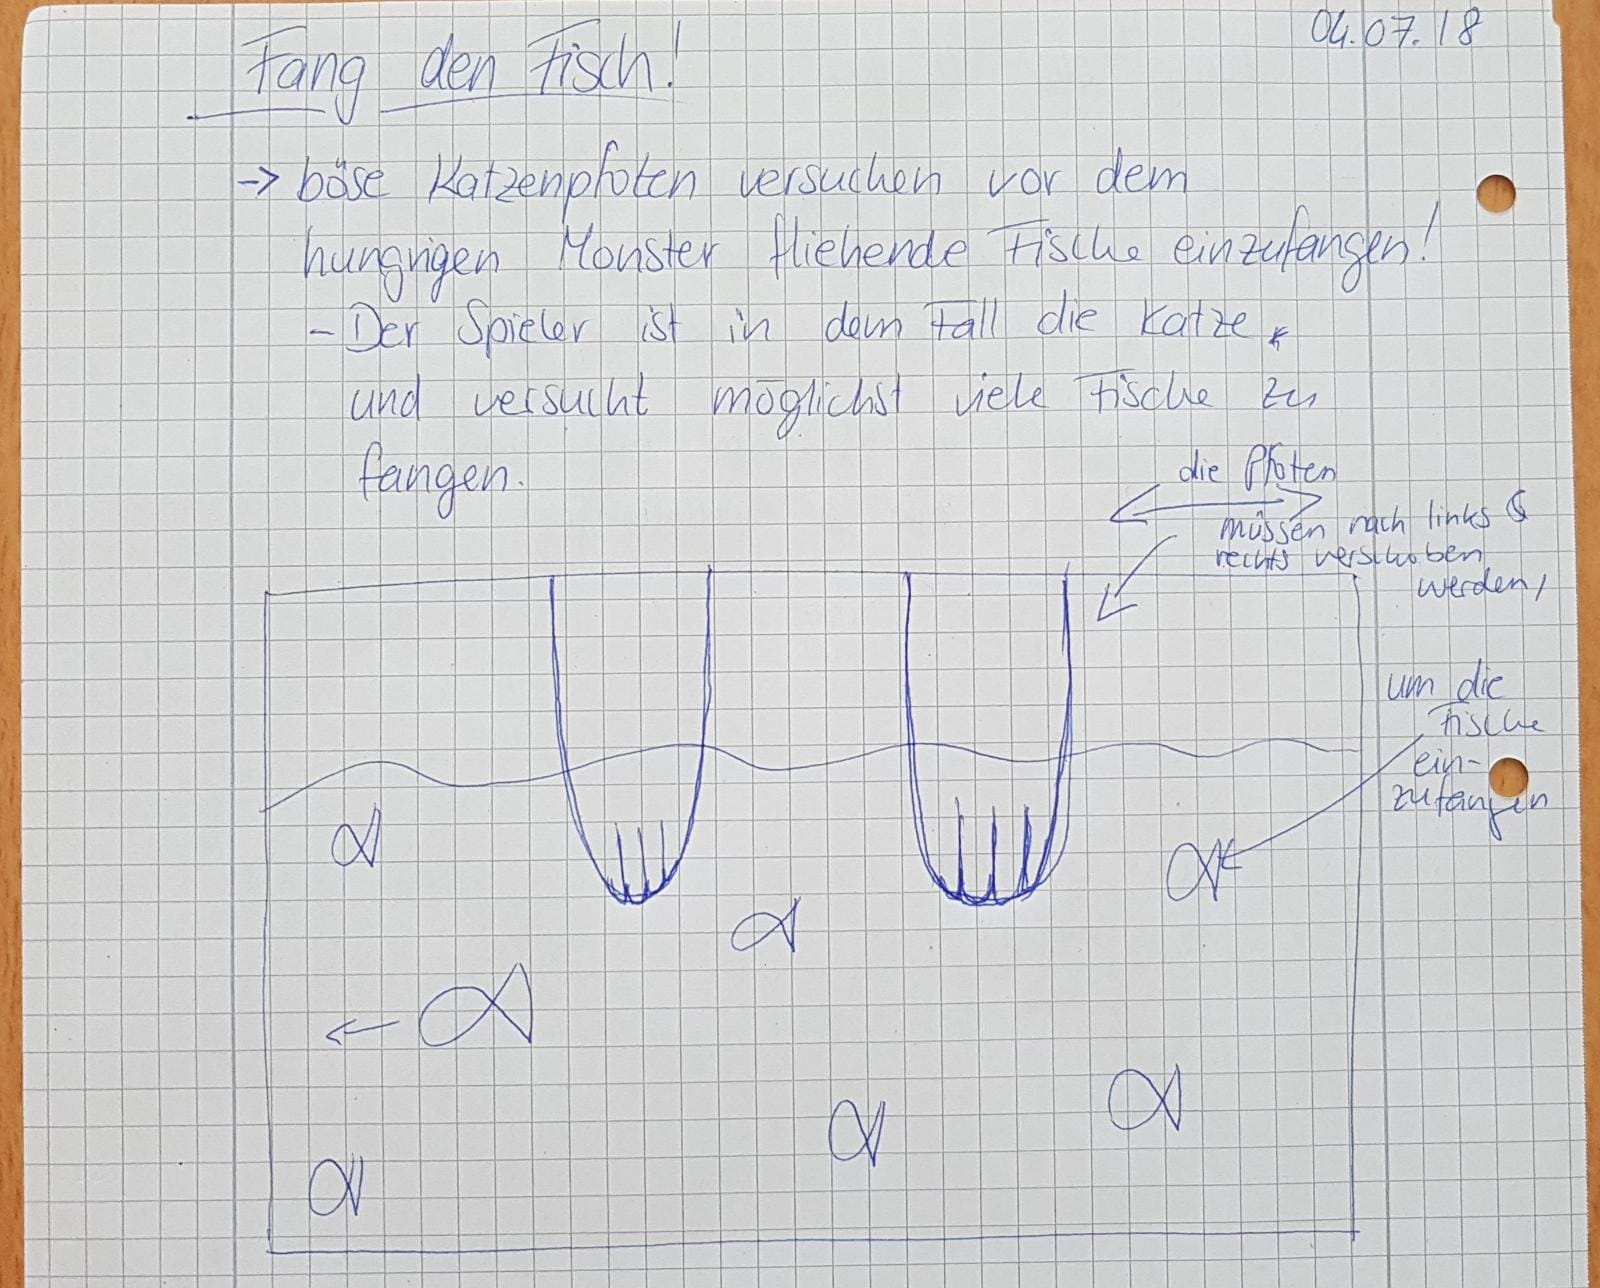 04.07.18
Fang den Fisch!
→ böse Katzenpfoten versuchen vor dem
hungrigen Monster fliehende Fische einzufangen!
- Der Spieler ist in dem Fall die Katze
und versucht möglichst viele Fische zu
fangen.
die Pfoten
müssen nach links &
rechts verschoben
werden,
um die
Fische
ein-
zufangen